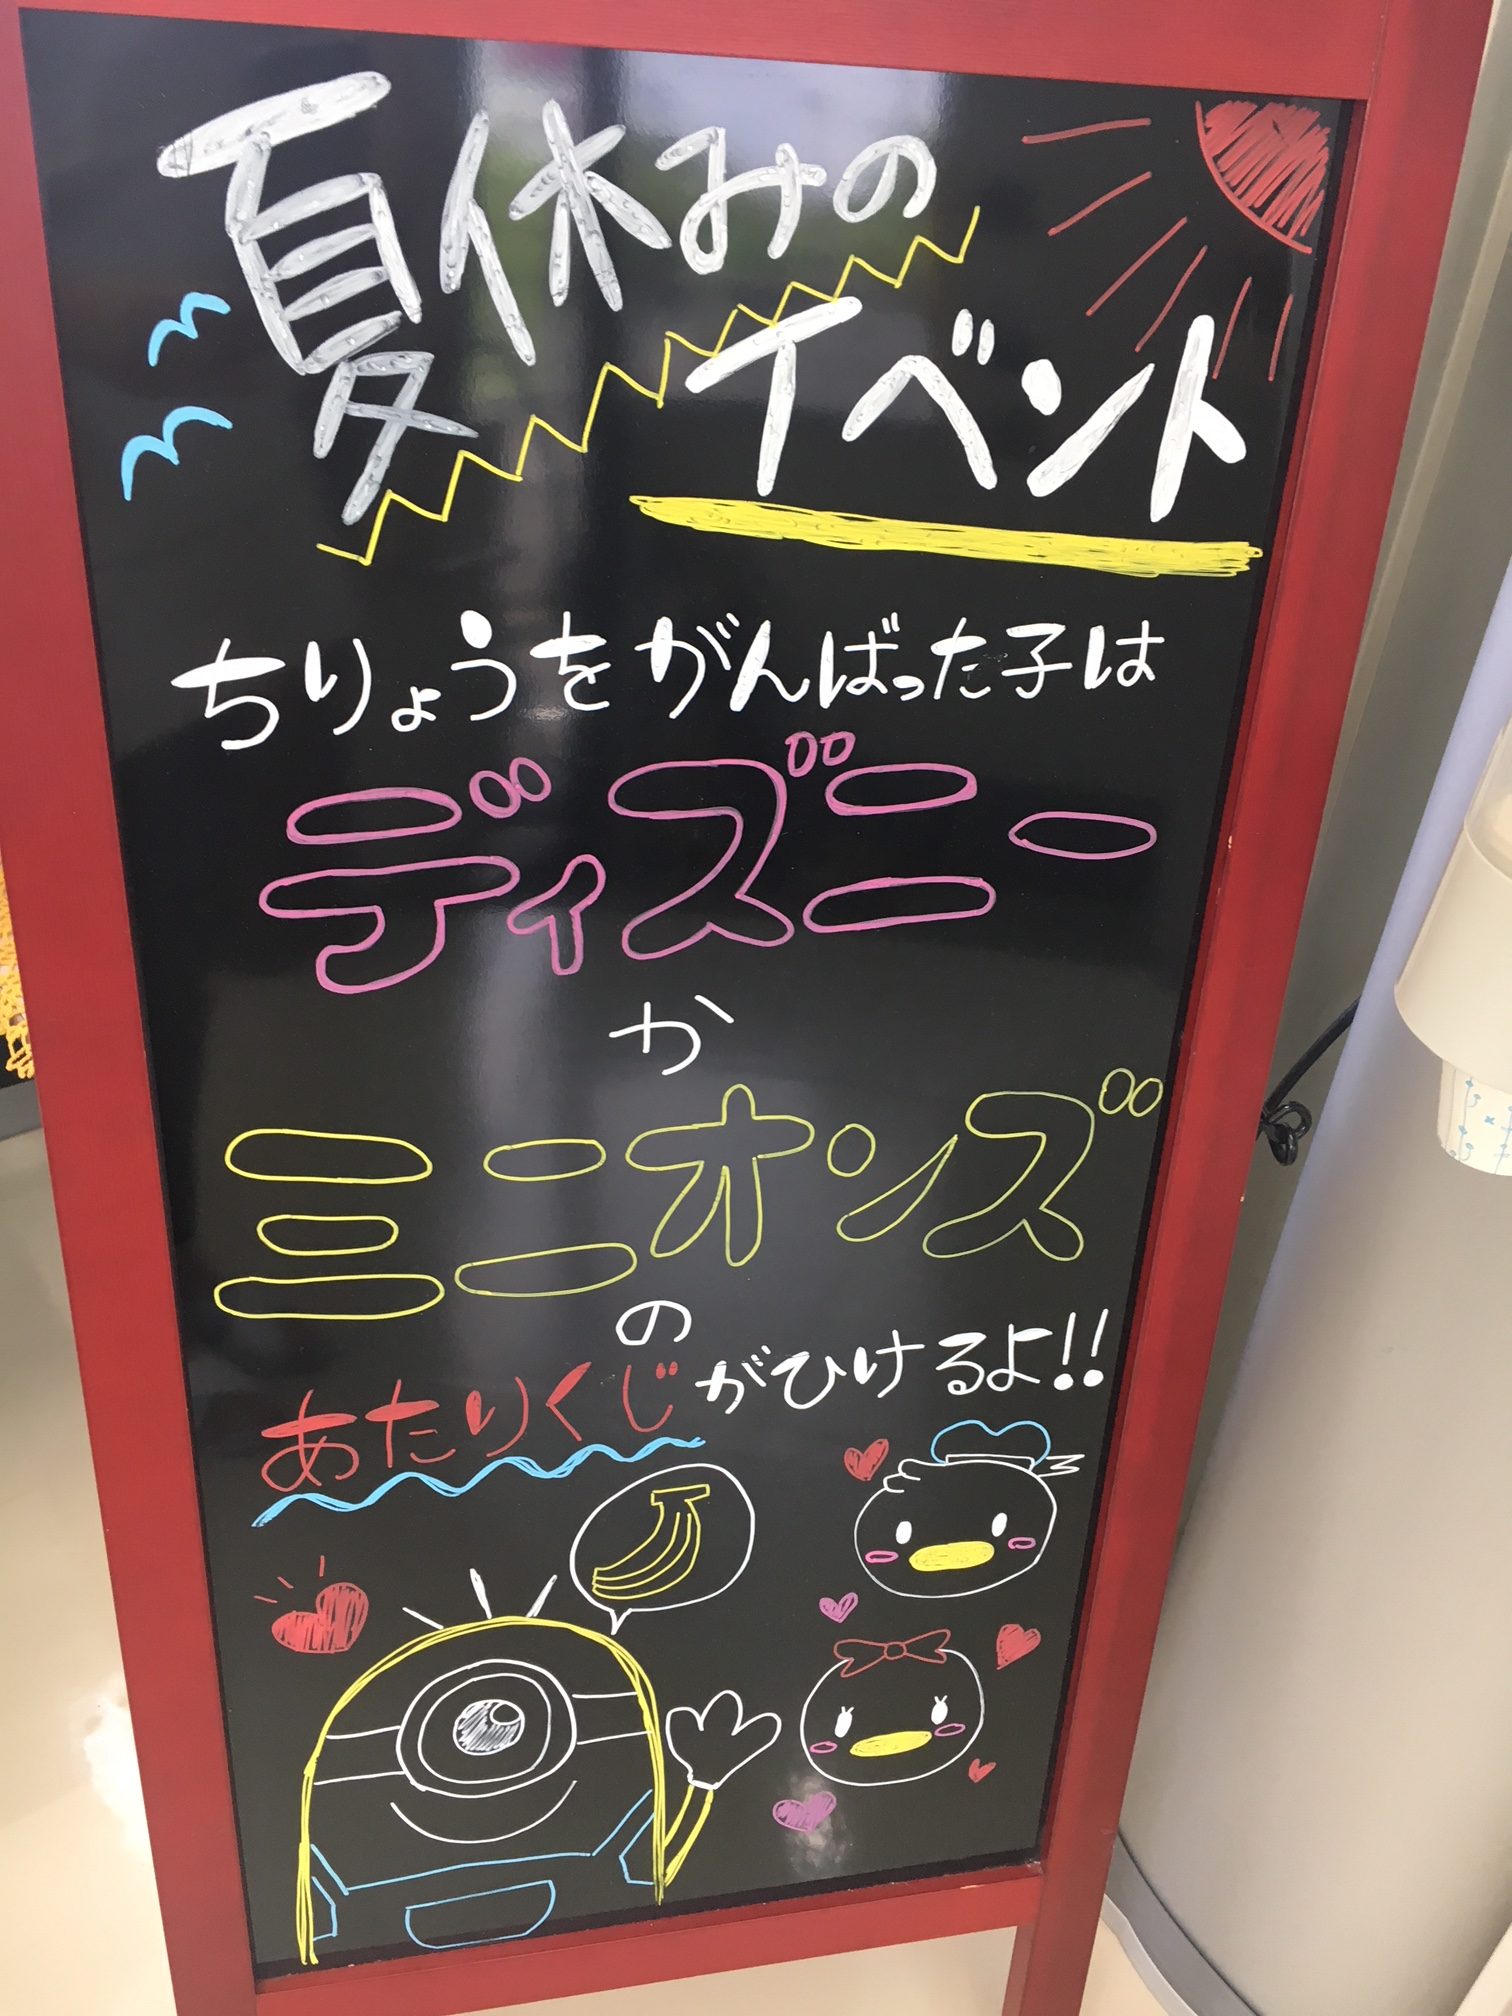 夏休みの
イベント
ちりょうをがんばった子は
ディズニー
か
ミニオンズ
の
あたりくじがひけるよ!!